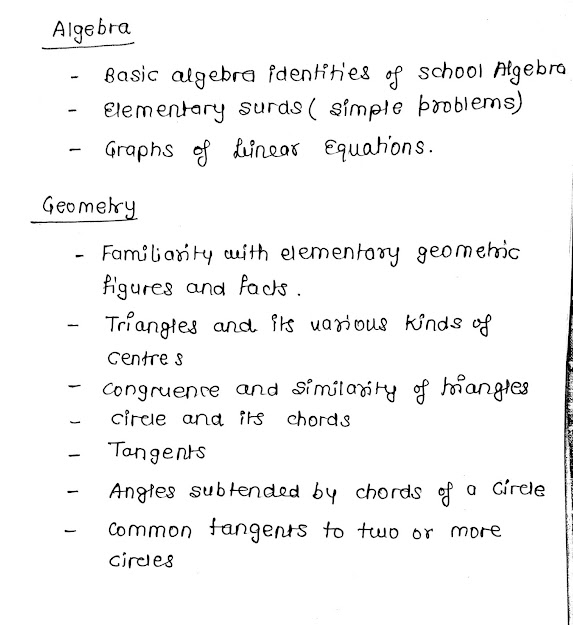 Algebra
- Basic algebra identities of school Algebra
- Elementary surds ( simple problems)
- Graphs of Linear Equations.
Geometry
- Familiarity with elementary geometric
figures and facts.
- Triangles and its various kinds of
centres
- Congruence and similarity of triangles
- circle and its chords
- Tangents
- Angles subtended by chords of a circle
- Common tangents to two or more
circles